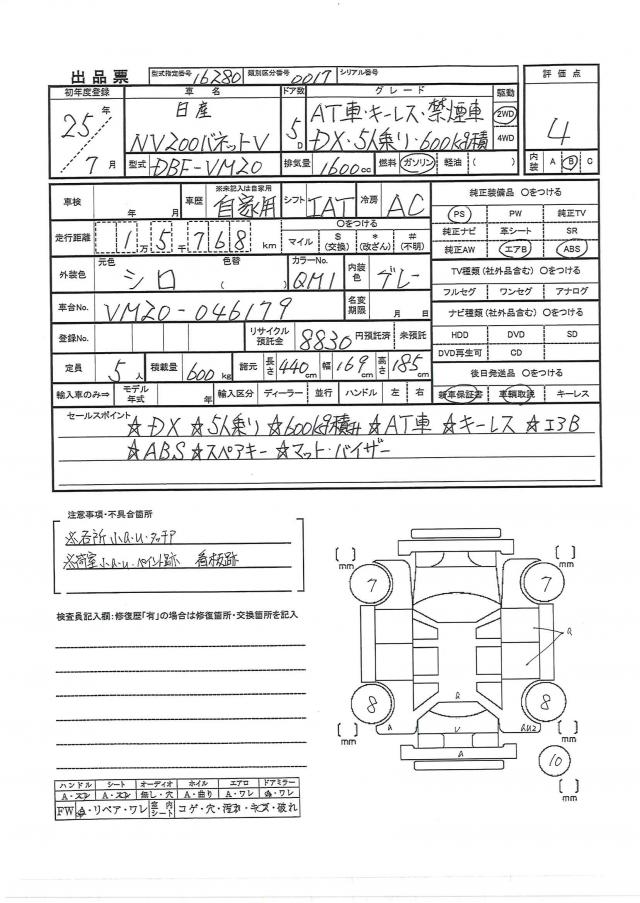 出品票 型式指定番号 16280 類別区分番号 0017 シリアル番号
初年度登録 車名 ドア数 グレード 駆動 評価点
25年 7月 日産 5D AT車・キーレス・禁煙車 2WD 4
NV200バネットV DX・5人乗り・600kg積 4WD
型式 DBF-VM20 排気量 1600cc 燃料 ガソリン 軽油 ( ) 内装 A B C
車検 年 月 車歴 ※未記入は自家用 自家用 シフト IAT 冷房 AC 純正装備品 ○をつける
PS PW 純正TV
走行距離 1万5千768km ○をつける マイル $(交換) *(改ざん) #(不明) 純正ナビ 革シート SR
純正AW エアB ABS
外装色 元色 シロ 色替 ( ) カラーNo. QM1 内装色 グレー TV種類(社外品含む) ○をつける
フルセグ ワンセグ アナログ
車台No. VM20-046179 名変期限 月 日 ナビ種類(社外品含む) ○をつける
登録No. リサイクル預託金 8830 円預託済 未預託 HDD DVD SD
DVD再生可 CD
定員 5人 積載量 600kg 諸元 長さ 440cm 幅 169cm 高さ 185cm 後日発送品 ○をつける
輸入車のみ⇒ モデル年式 年 輸入区分 ディーラー 並行 ハンドル 左 右 新車保証書 車輌取説 キーレス
セールスポイント
☆DX ☆5人乗り ☆600kg積み ☆AT車 ☆キーレス ☆エアB
☆ABS ☆スペアキー ☆マット・バイザー
注意事項・不具合箇所
※各所小a・u・タッチア
※荷室小a・u・ペイント跡 看板跡
検査員記入欄:修復歴「有」の場合は修復箇所・交換箇所を記入
[ ] mm [ ] mm
7 7
a
8 8
a
a v au2
a
[ ] mm [ ] mm
10
[ ] mm
ハンドル シート オーディオ ホイル エアロ ドアミラー
A・スレ A・スレ 無し・穴 A・曲り A・ワレ A・ワレ
FW A・リペア・ワレ 室内シート コゲ・穴・汚れ・キズ・破れ